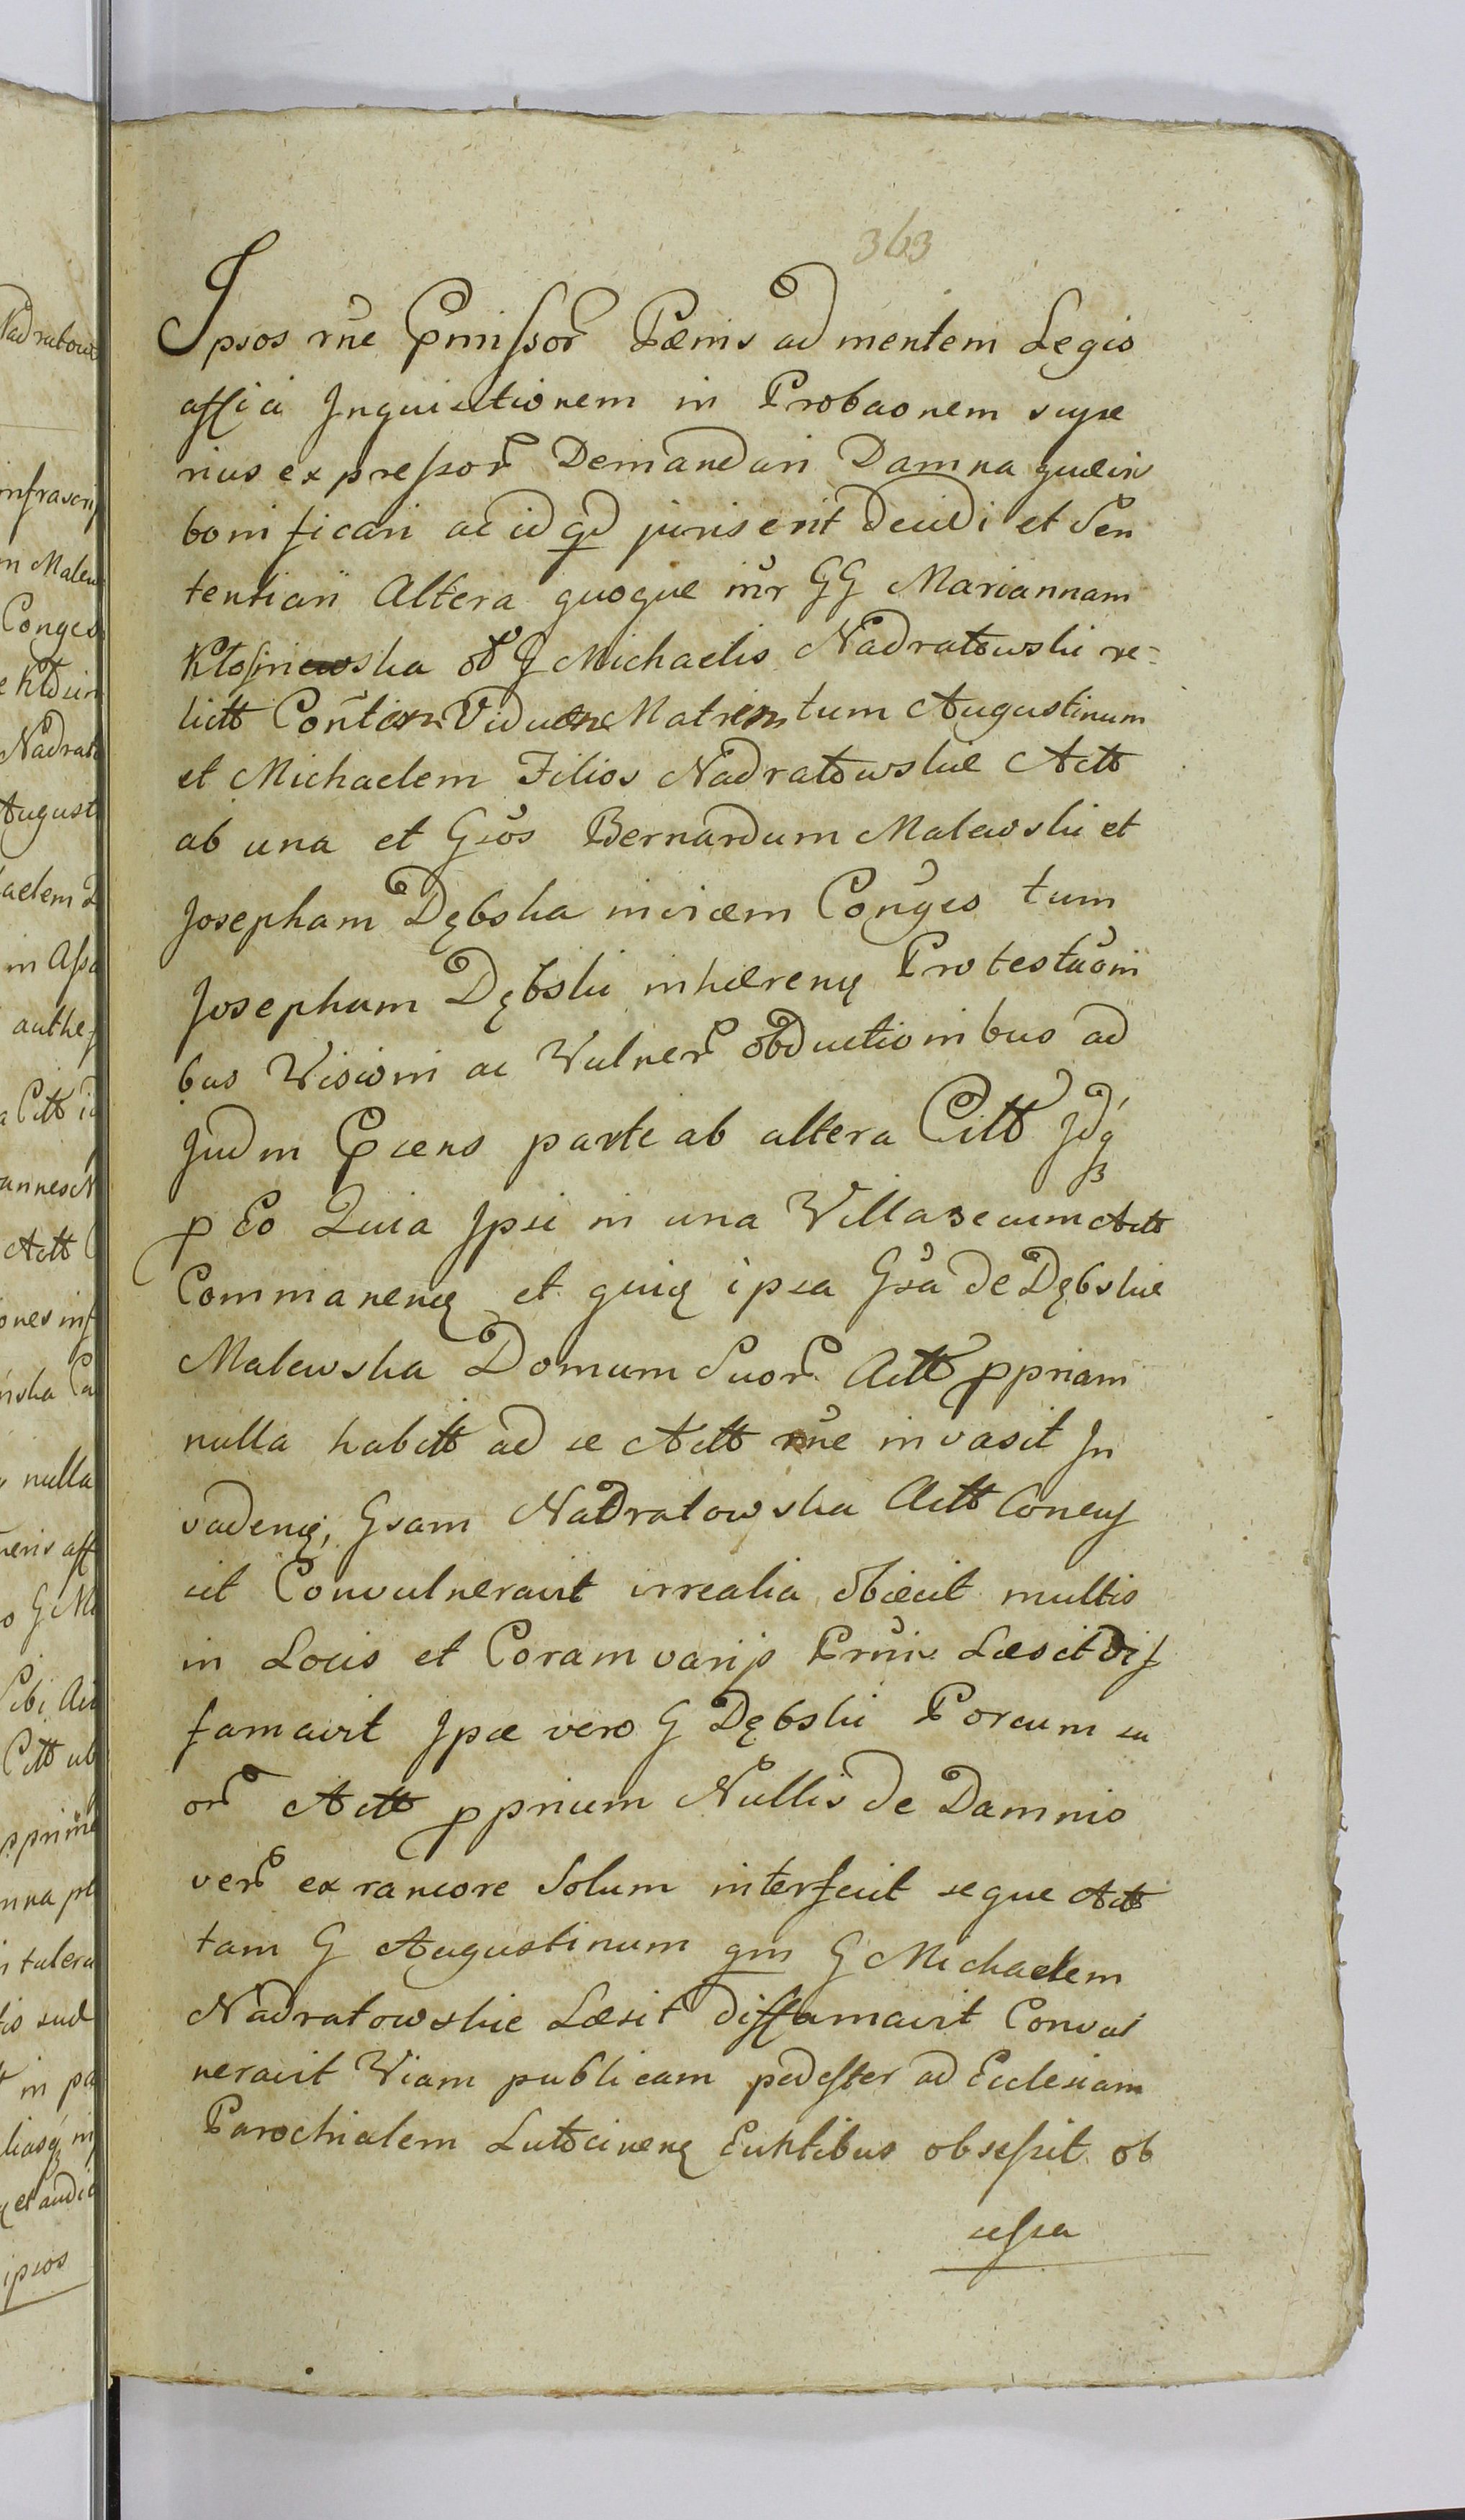 363
Ipsos rñe Pmissor Pænis ad mentem Legis
affici Inquisitionem in Probaonem supe
rius expressor Demandari Damna quævis
bonificari ac id qd juris erit decidi et Sen
tentiari Altera quoque inr GG Mariannam
Kłosniewska ol G Michaelis Nadratowski re-
lictt Contem Viduam Matrem tum Augustinum
et Michaelem Filios Nadratowskie Actt
ab una et Gsos Bernardum Malewski et
Josepham Dębska invicem Conges tum
Josephum Dębski inhæreng Protestaoni
bus Visioni ac Vulner obductionibus ad
Judm Pcens parte ab altera Citt Idq
p Eo Quia Ipsi in una Villa secum Actt
Commaneng et quia ipsa Gsa de Dębskie
Malewska Domum Suor Actt ppriam
nulla habitt ad se Actt rñe invasit In
vadeng, Gsam Nadratowska Actt Concus
sit Convulneravit irrealia obiecit multis
in Locis et Coram varijs Prnis Læsit dif
famavit Ipse vero G Dębski Porcum su
or Actt pprium Nullis de Damnis
ver ex rancore Solum interfecit seque Actt
tam G Augustinum qm G Michaelem
Nadratowskie Læsit diffamavit Convul
neravit Viam publicam pedester ad Ecclesiam
Parochialem Lutocineng Euntibus obsessit ob
sessa
Nadratows
infrascrip
Conges
Nadrato
August
in Assa
authe
Actt
nulla
Citt ab
in pa
ipsos